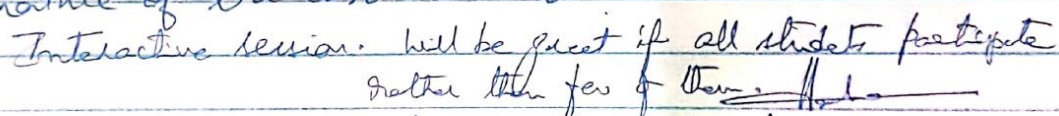 of
Interactive session. Will be great if all students participate
rather then few of them.